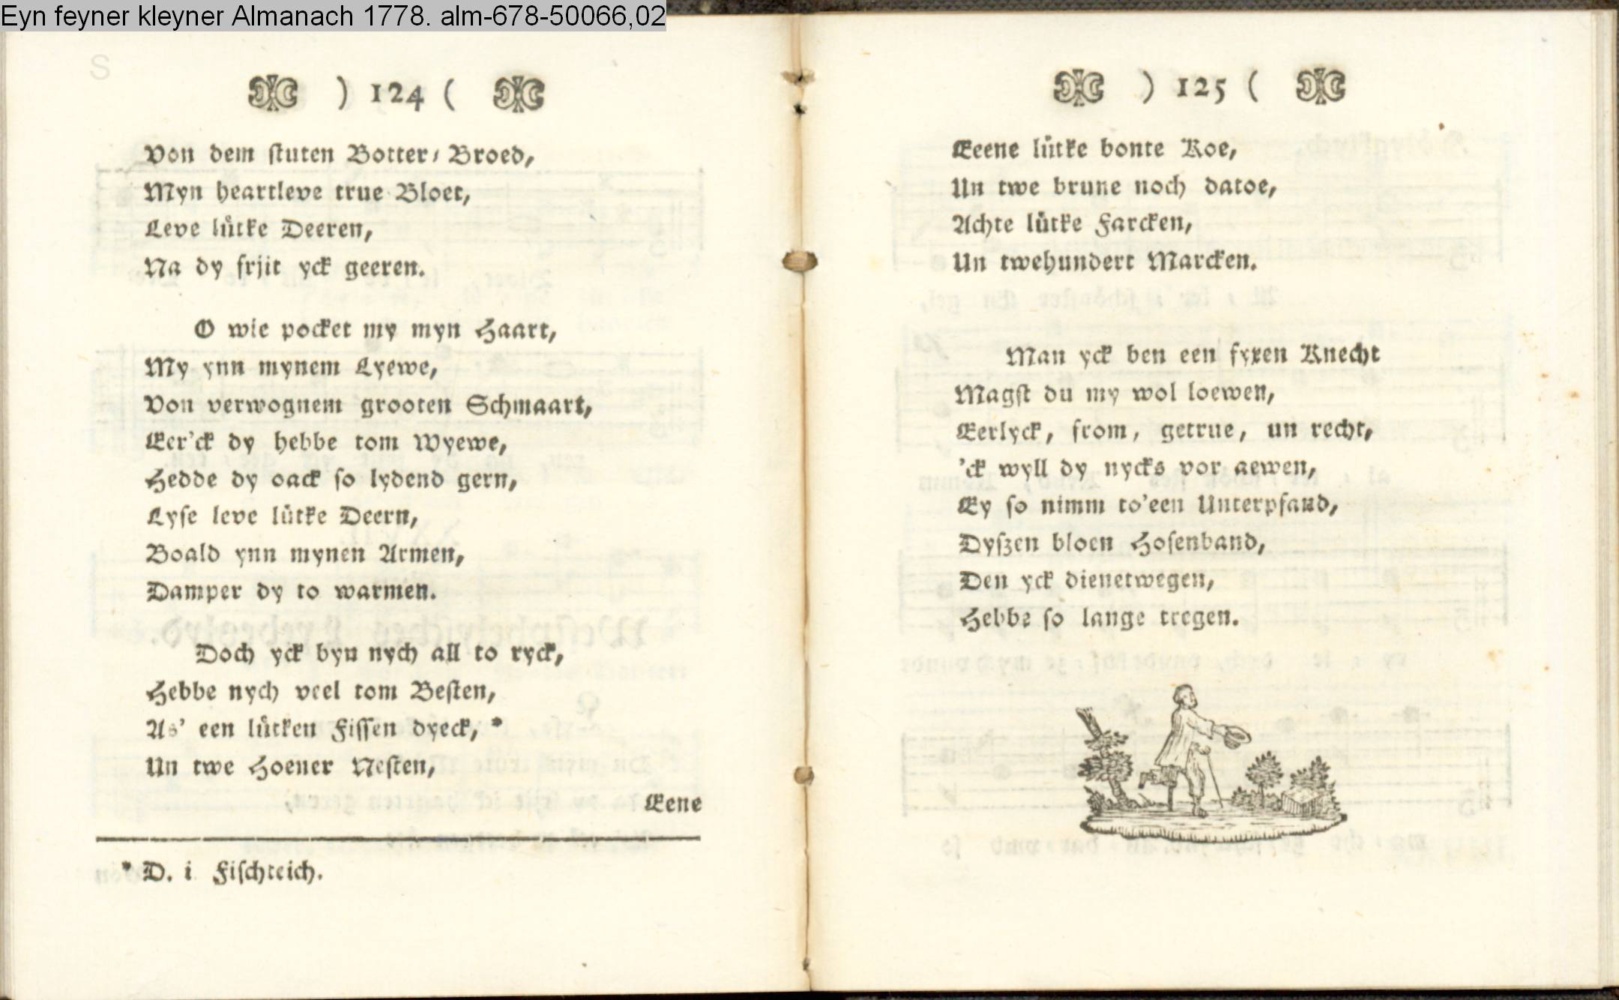 Eyn feyner kleyner Almanach 1778. alm-678-50066,02
) 124 (
Von dem stuten Botter-Broed,
Myn heartleve true Bloet,
Leve lütke Deeren,
Na dy frjit yck geeren.
O wie pocket my myn Haart,
My ynn mynem Lyewe,
Von verwognem grooten Schmaart,
Eer'ck dy hebbe tom Wyewe,
Hedde dy oack so lydend gern,
Lyse leve lütke Deern,
Boald ynn mynen Armen,
Damper dy to warmen.
Doch yck byn nych all to ryck,
Hebbe nych veel tom Besten,
As' een lütken Fissen dyeck,*
Un twe Hoener Nesten,
Eene
* D. i Fischteich.
) 125 (
Eeene lütke bonte Koe,
Un twe brune noch datoe,
Achte lütke Farcken,
Un twehundert Marcken.
Man yck ben een fyxen Knecht
Magst du my wol loewen,
Eerlyck, from, getrue, un recht,
'ck wyll dy nycks vor aewen,
Ey so nimm to'een Unterpfand,
Dyszen bloen Hosenband,
Den yck dienetwegen,
Hebbe so lange tregen.